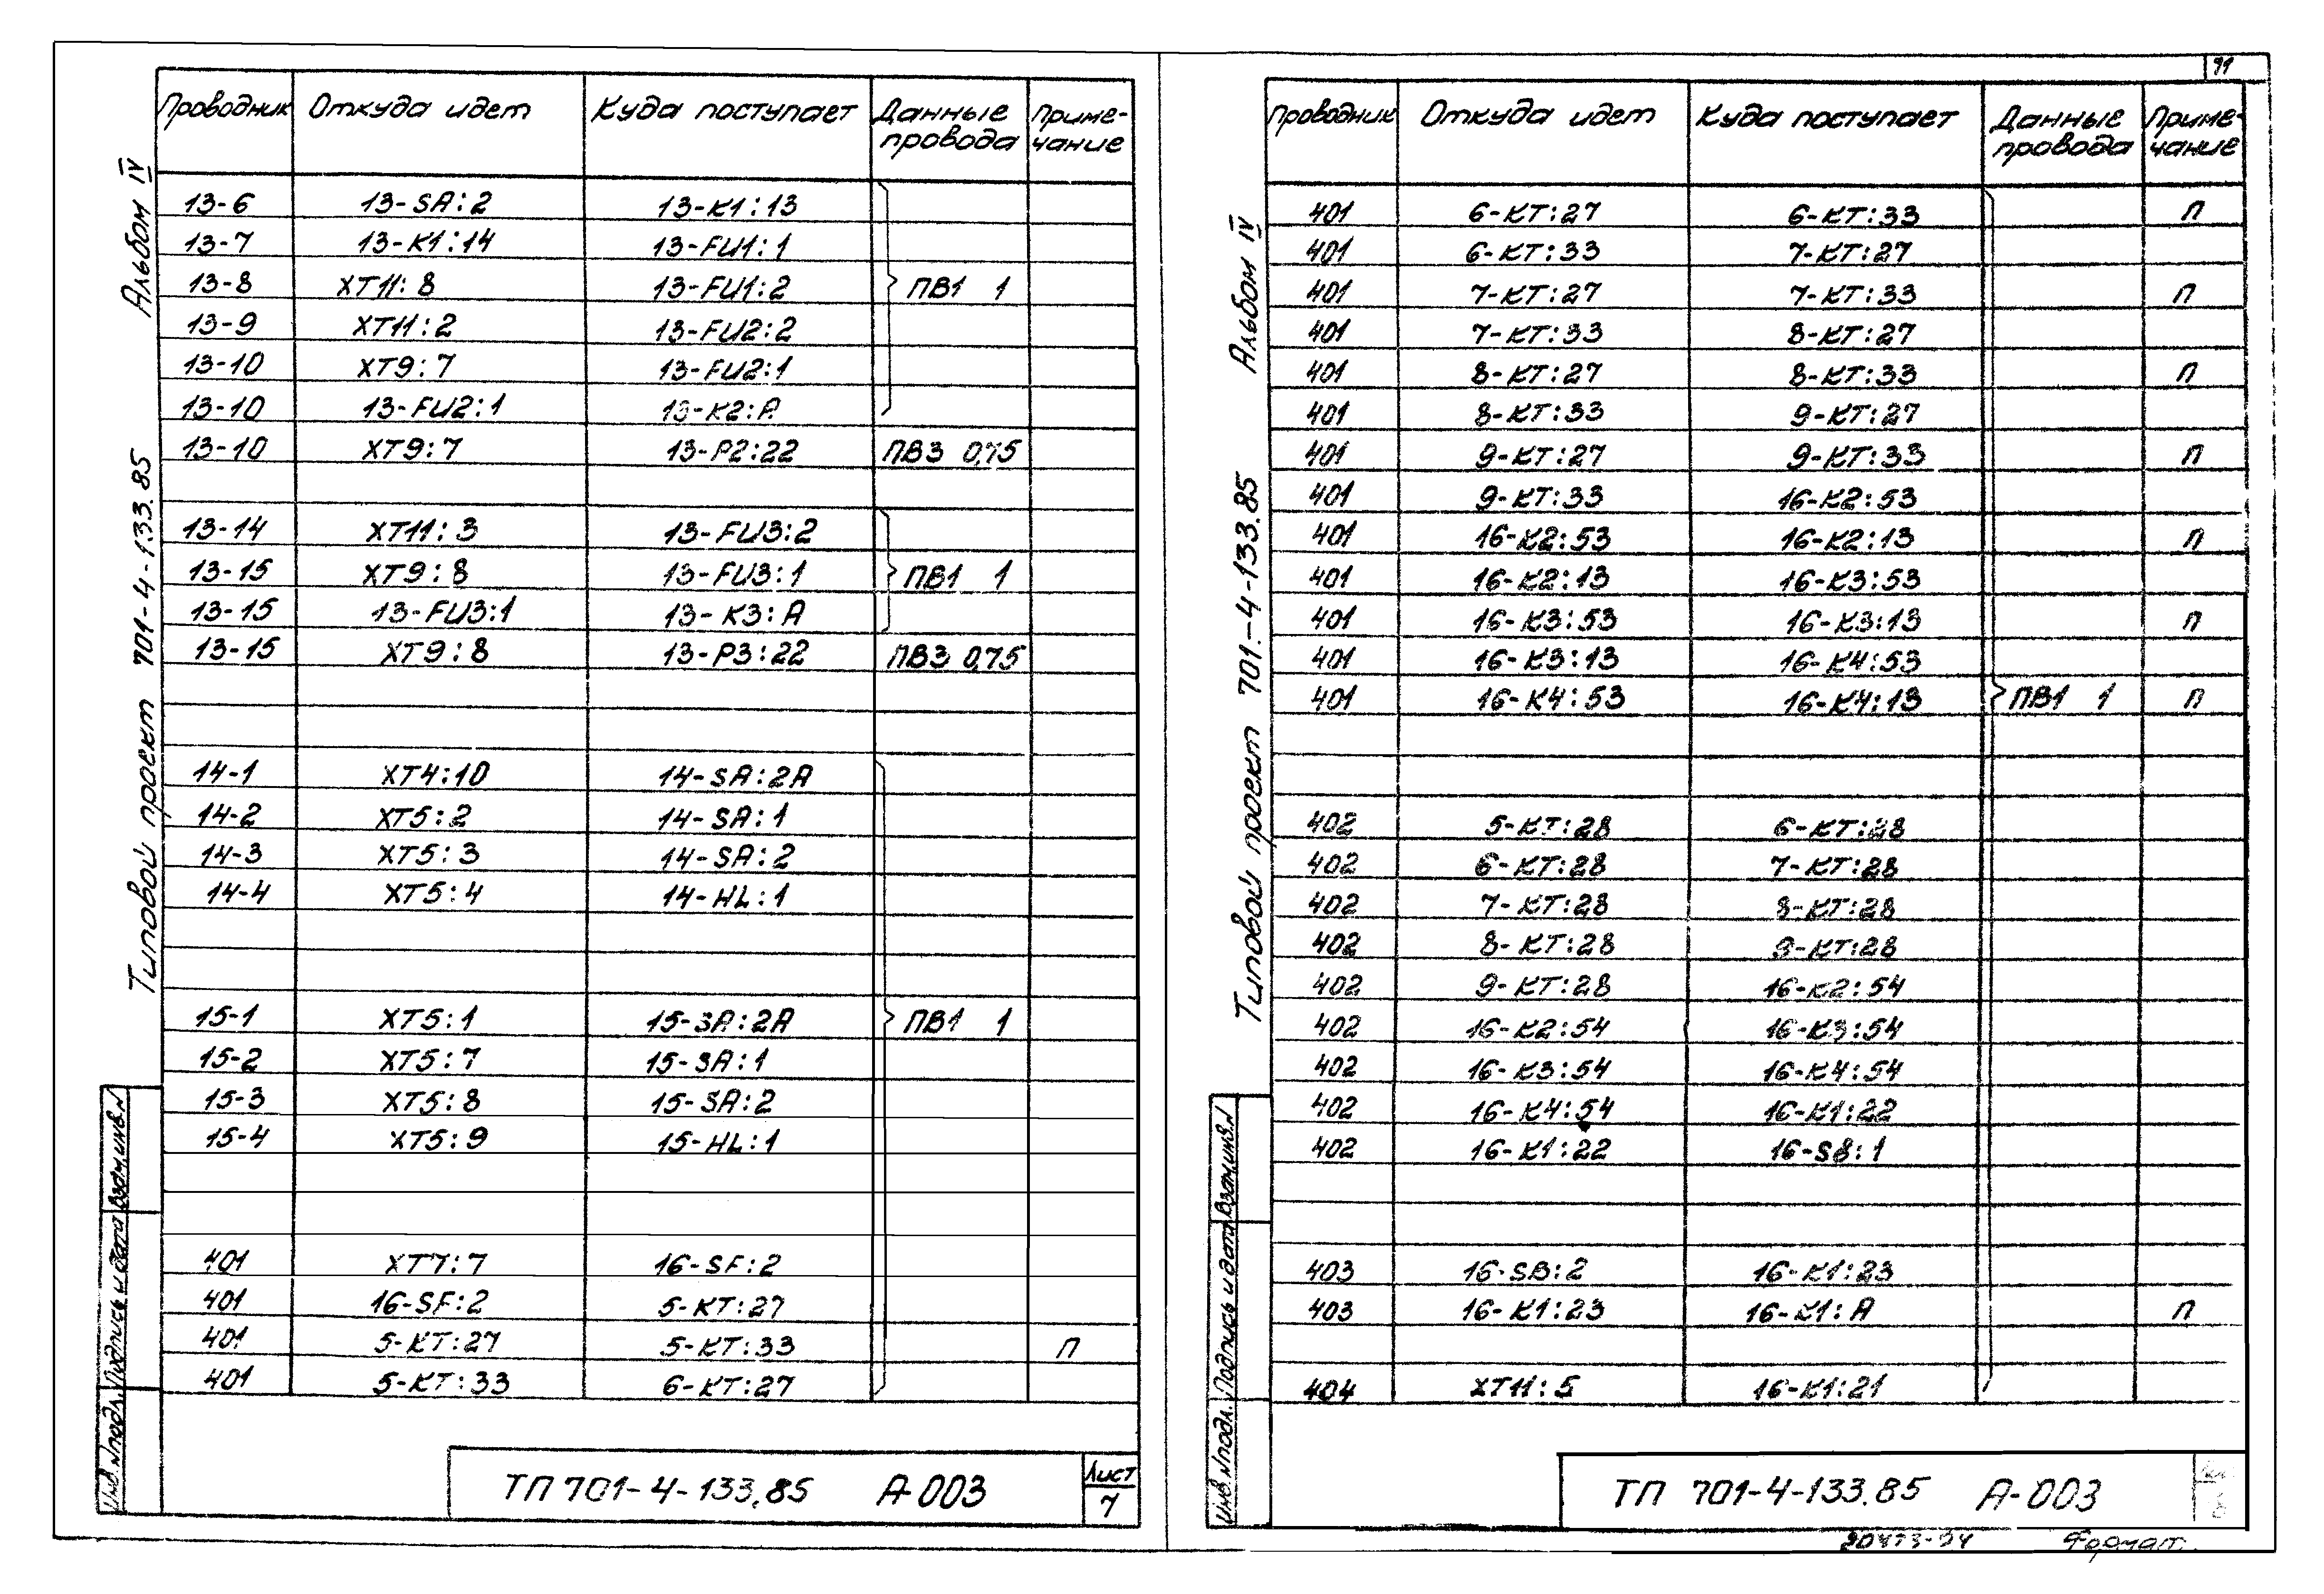 Альбом IV
Типовой проект 701-4-133.85
Проводник Откуда идет Куда поступает Данные провода Примечание
13-6 13-SA:2 13-K1:13
13-7 13-K1:14 13-FU1:1
13-8 XT11:8 13-FU1:2 ПВ1 1
13-9 XT11:2 13-FU2:2
13-10 XT9:7 13-FU2:1
13-10 13-FU2:1 13-K2:A
13-10 XT9:7 13-P2:22 ПВ3 0,75
13-14 XT11:3 13-FU3:2
13-15 XT9:8 13-FU3:1 ПВ1 1
13-15 13-FU3:1 13-K3:A
13-15 XT9:8 13-P3:22 ПВ3 0,75
14-1 XT4:10 14-SA:2A
14-2 XT5:2 14-SA:1
14-3 XT5:3 14-SA:2
14-4 XT5:4 14-HL:1
15-1 XT5:1 15-SA:2A ПВ1 1
15-2 XT5:7 15-SA:1
15-3 XT5:8 15-SA:2
15-4 XT5:9 15-HL:1
401 XT7:7 16-SF:2
401 16-SF:2 5-KT:27
401 5-KT:27 5-KT:33 П
401 5-KT:33 6-KT:27
Инв.№подл. Подпись и дата Взам.инв.№
ТП 701-4-133.85 А-003
Лист
7
91
Альбом IV
Типовой проект 701-4-133.85
Проводник Откуда идет Куда поступает Данные провода Примечание
401 6-KT:27 6-KT:33 П
401 6-KT:33 7-KT:27
401 7-KT:27 7-KT:33 П
401 7-KT:33 8-KT:27
401 8-KT:27 8-KT:33 П
401 8-KT:33 9-KT:27
401 9-KT:27 9-KT:33 П
401 9-KT:33 16-K2:53
401 16-K2:53 16-K2:13 П
401 16-K2:13 16-K3:53
401 16-K3:53 16-K3:13 П
401 16-K3:13 16-K4:53
401 16-K4:53 16-K4:13 ПВ1 1 П
402 5-KT:28 6-KT:28
402 6-KT:28 7-KT:28
402 7-KT:28 8-KT:28
402 8-KT:28 9-KT:28
402 9-KT:28 16-K2:54
402 16-K2:54 16-K3:54
402 16-K3:54 16-K4:54
402 16-K4:54 16-K1:22
402 16-K1:22 16-SB:1
403 16-SB:2 16-K1:23
403 16-K1:23 16-K1:A П
404 XT11:5 16-K1:21
Инв.№подл. Подпись и дата Взам.инв.№
ТП 701-4-133.85 А-003
Формат